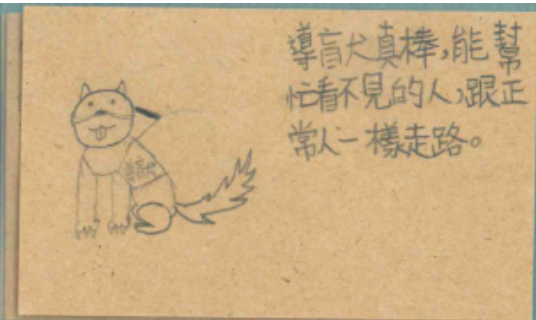 導盲犬真棒,能幫
忙看不見的人,跟正
常人一樣走路。
導盲犬